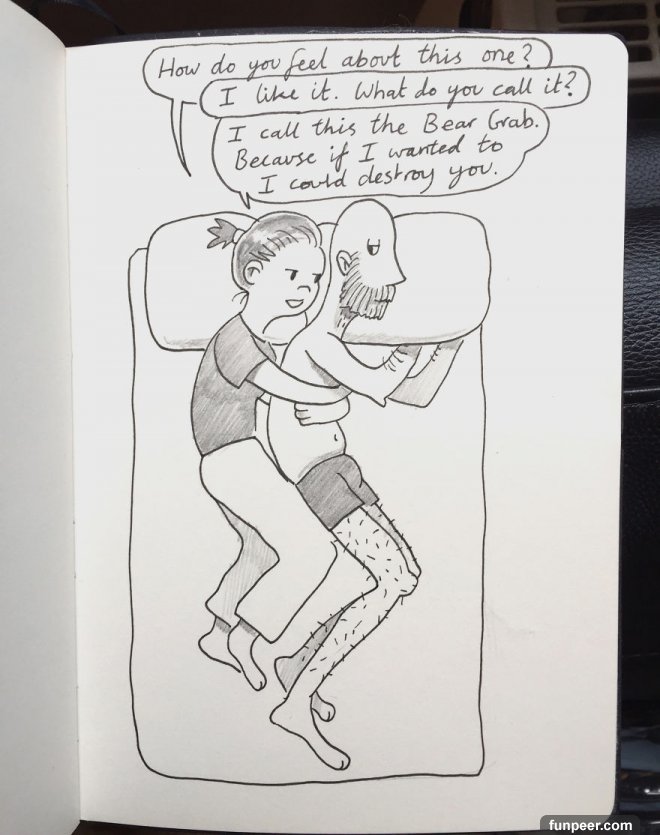 How do you feel about this one?
I like it. What do you call it?
I call this the Bear Grab.
Because if I wanted to
I could destroy you.
funpeer.com